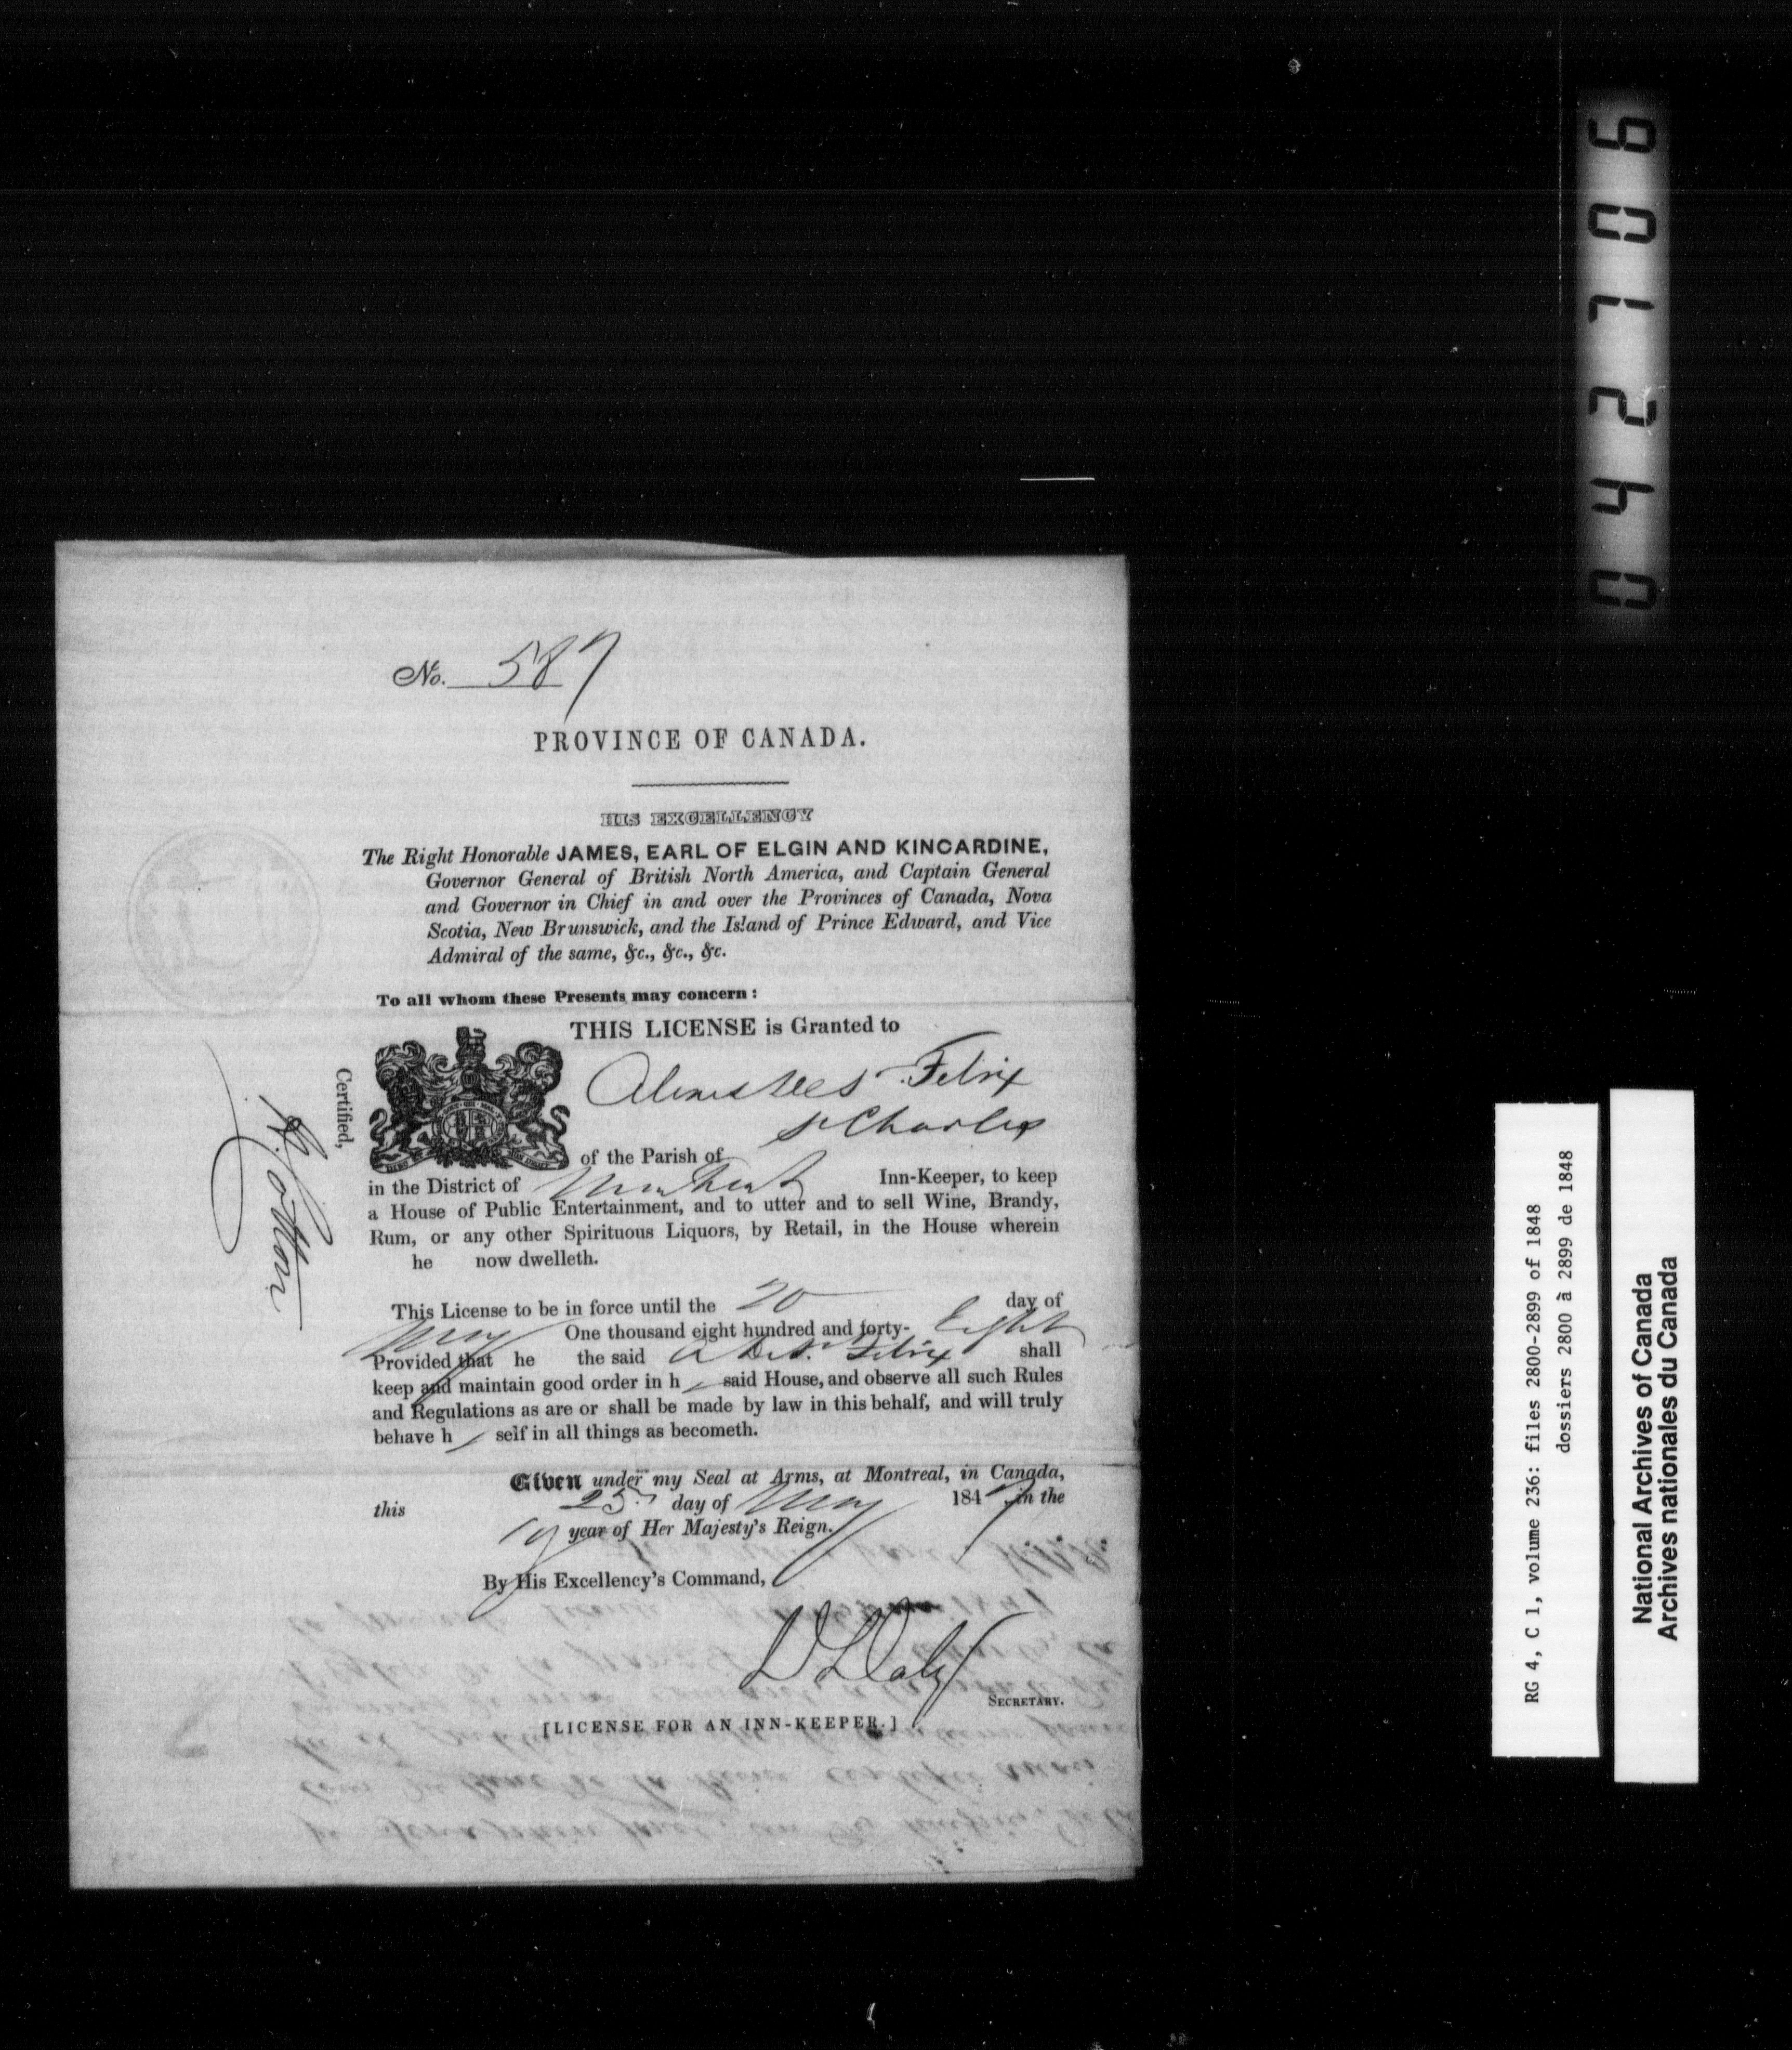 No. 587
PROVINCE OF CANADA.
HIS EXCELLENCY
The Right Honorable JAMES, EARL OF ELGIN AND KINCARDINE,
Governor General of British North America, and Captain General
and Governor in Chief in and over the Provinces of Canada, Nova
Scotia, New Brunswick, and the Island of Prince Edward, and Vice
Admiral of the same, &c., &c., &c.
To all whom these Presents may concern:
THIS LICENSE is Granted to
Felix
St Charles
of the Parish of
in the District of Montreal Inn-Keeper, to keep
a House of Public Entertainment, and to utter and to sell Wine, Brandy,
Rum, or any other Spirituous Liquors, by Retail, in the House wherein
he now dwelleth.
This License to be in force until the 20 day of
May One thousand eight hundred and forty- Eight
Provided that he the said Felix shall
keep and maintain good order in h said House, and observe all such Rules
and Regulations as are or shall be made by law in this behalf, and will truly
behave h self in all things as becometh.
Given under my Seal at Arms, at Montreal, in Canada,
this 25 day of May 1847 in the
10 year of Her Majesty's Reign.
By His Excellency's Command,
D Daly
SECRETARY.
[LICENSE FOR AN INN-KEEPER.]
Certified,
042706
RG 4, C 1, volume 236: files 2800-2899 of 1848
dossiers 2800 à 2899 de 1848
National Archives of Canada
Archives nationales du Canada